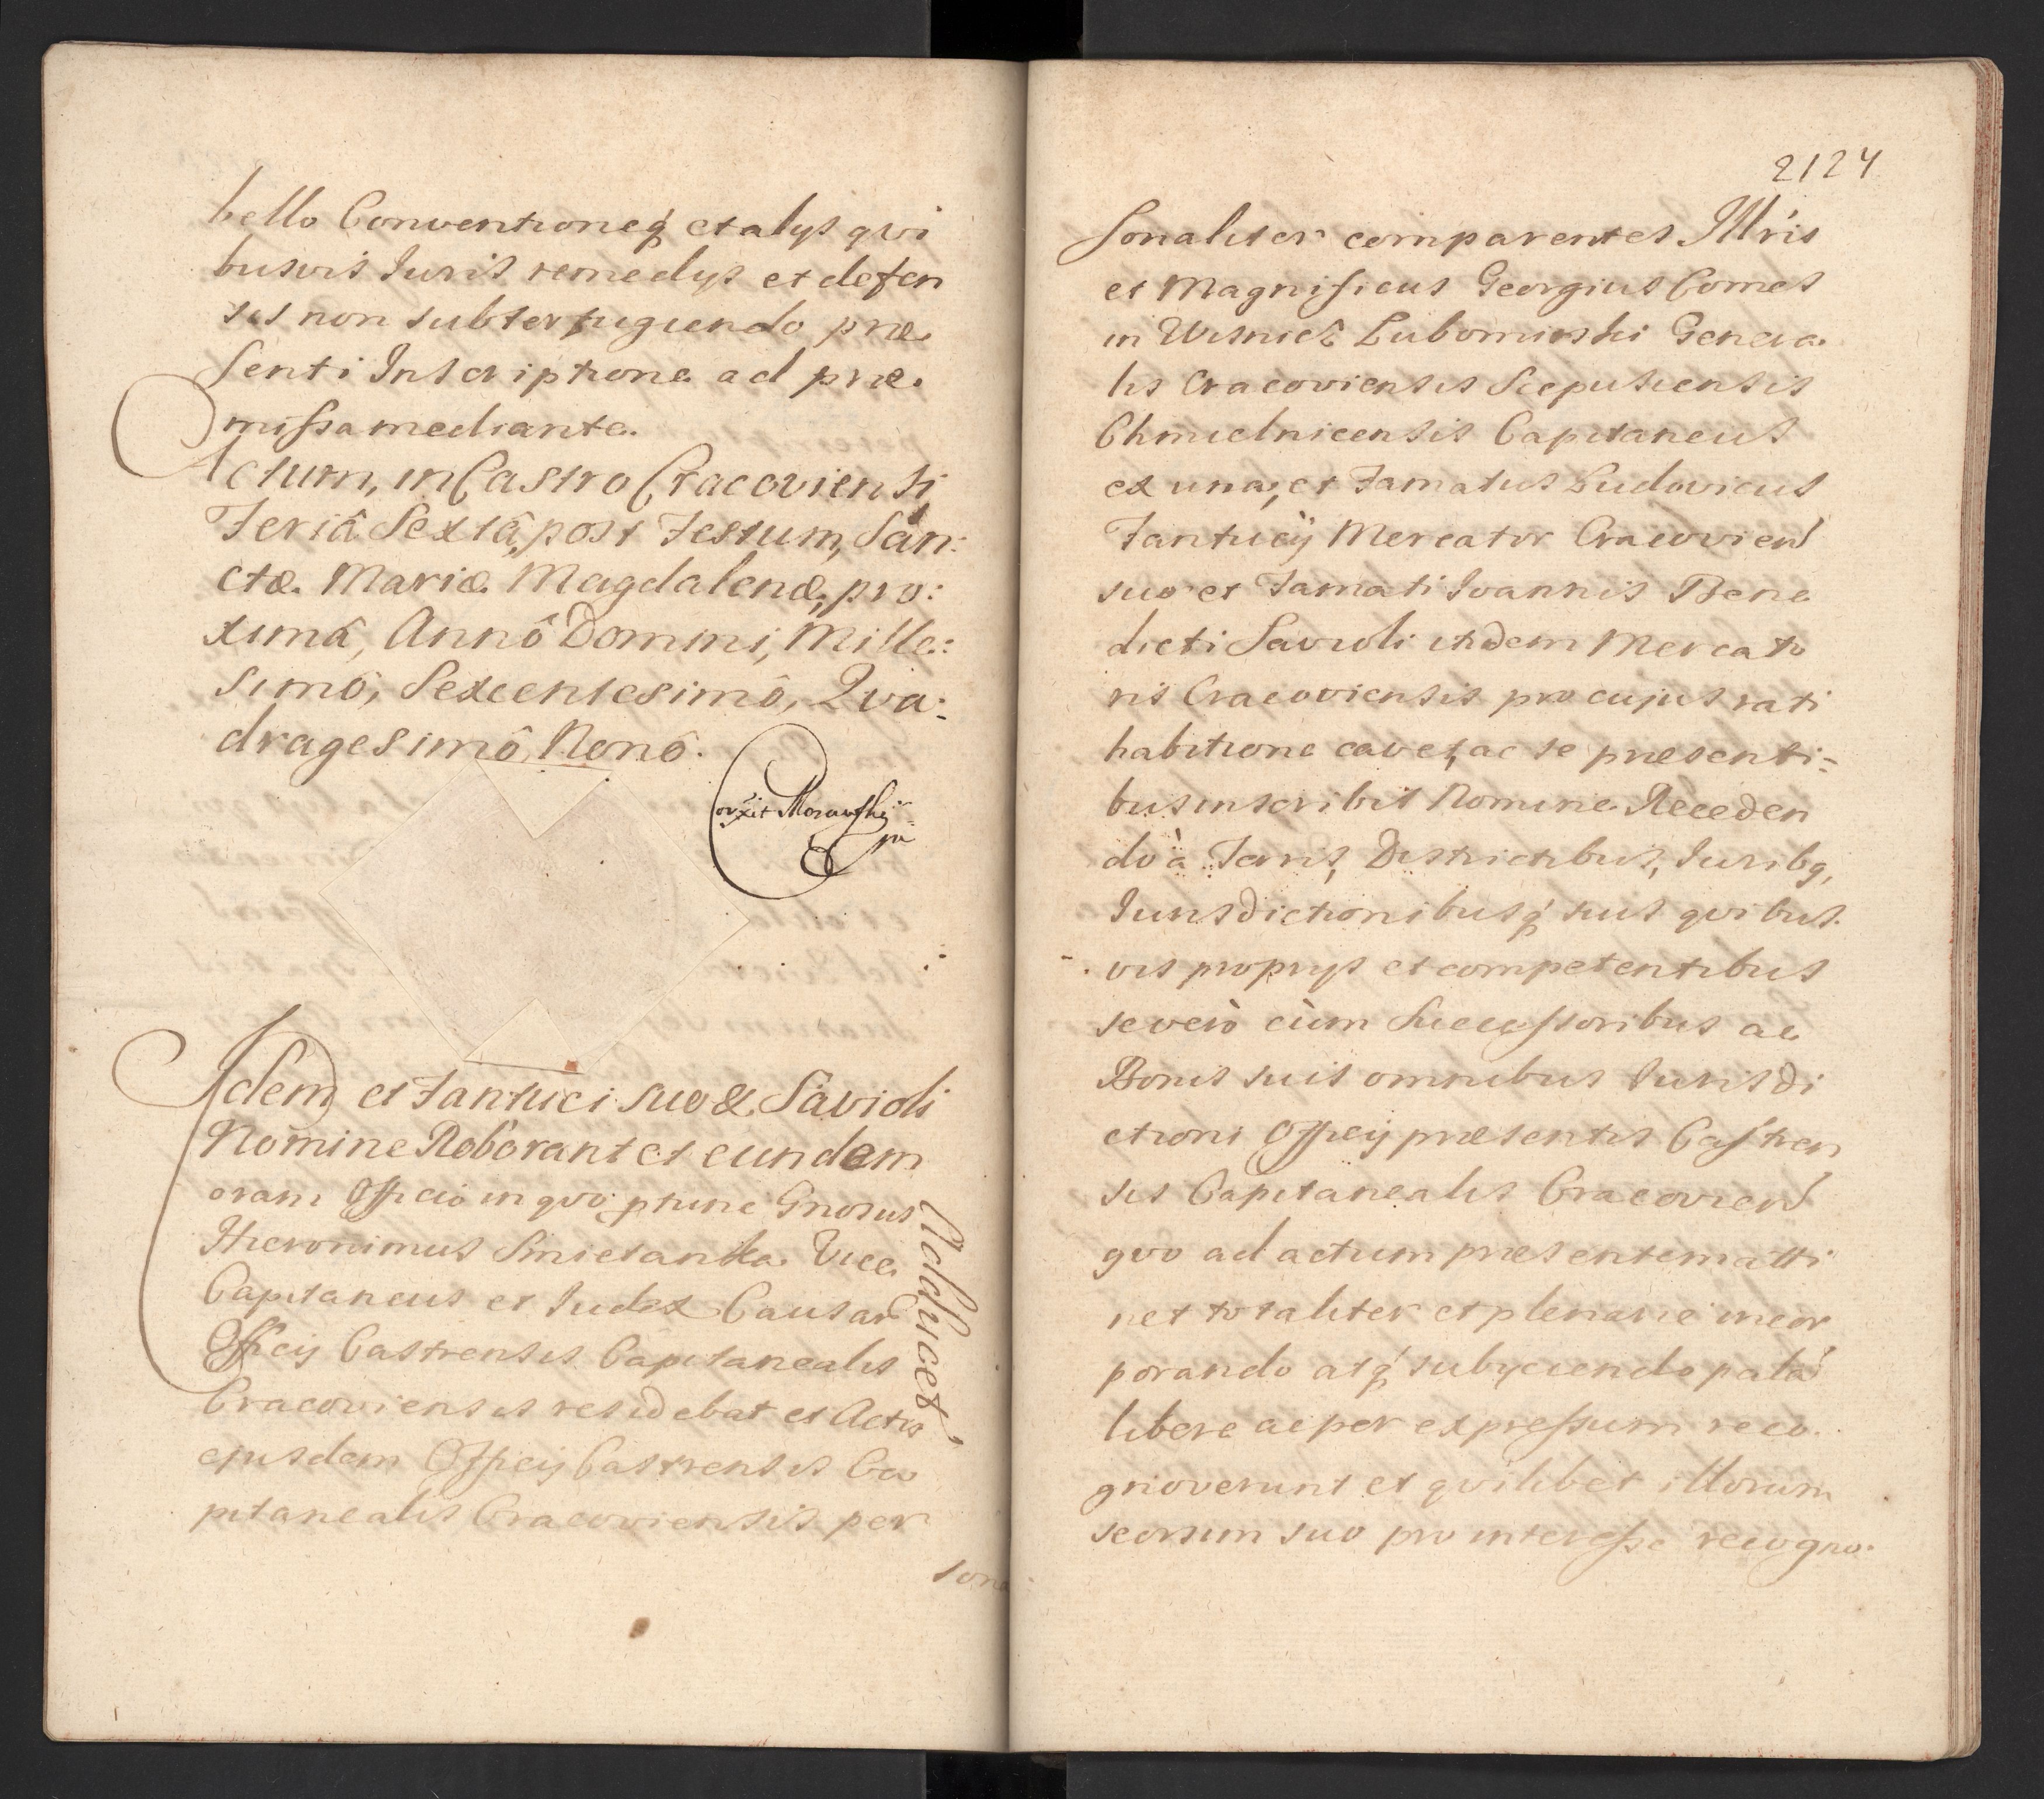 bello Conventioneq₃ et alys qvi
busvis Iuris remedys et defen
sis non subterfugiendo præ
senti Inscriptione ad præ
missa mediante.
Actum, in Castro Cracoviensi
Feriâ Sextâ, post Festum, San:
ctæ Mariæ Magdalenæ, pro:
ximâ, Annô Domini, Mille:
simô, Sexcentesimô, Qva:
dragesimô, Nonô.
Corrxit Morawskj
pn
Idem et Fantuci suo & Savioli
Nomine Roborant et eundem
oram Officio in qvo ptunc Gnosus
Hieronimus Smietanka Vice
Capitaneus et Iudex Causar
Officij Castrensis Capitanealis
Cracoviensis residebat et Actis
ejusdem Officij Castrensis Ca
pitanealis Cracoviensis per
sona
Adducet
2124
sonaliter comparentes Illris
et Magnificus Georgius Comes
in Wisnicz Lubomirski Genera
lis Cracoviensis Scepusiensis
Chmielnicensis Capitaneus
ex una, et Famatus Ludovicus
Fantucij Mercator Cracovien
suo et Famati Ioannis Bene
dicti Savioli itidem Mercato
ris Cracoviensis pro cujus rati
habitione cavet, ac se præsenti=
bus inscribit Nomine Receden
do à Terris, Districtibus, Iuribq,
Iurisdictionibusq₃ suis qvibus
vis proprys et competentibus
se verò cùm Successoribus ac
Bonis suis omnibus Iurisdi
ctioni Officij præsentis Castren
sis Capitanealis Cracovien
qvo ad actum præsentem atti
net totaliter et plenarie incor
porando atq₃ subyciendo palà
libere ac per expressum reco
gnoverunt et qvilibet illorum
seorsim suo pro interesse recogno.